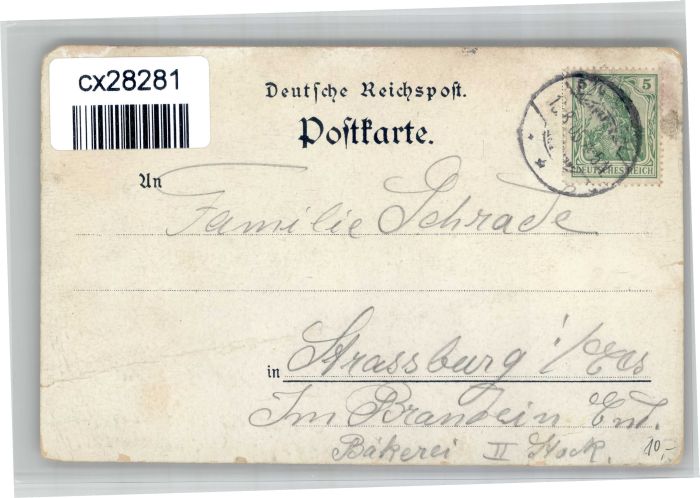 cx28281
Deutsche Reichspost.
Postkarte.
5 5
DEUTSCHES REICH
An
Familie Schrade
in Strassburg i/Els
Im
Bäkerei II Stock.
10,-